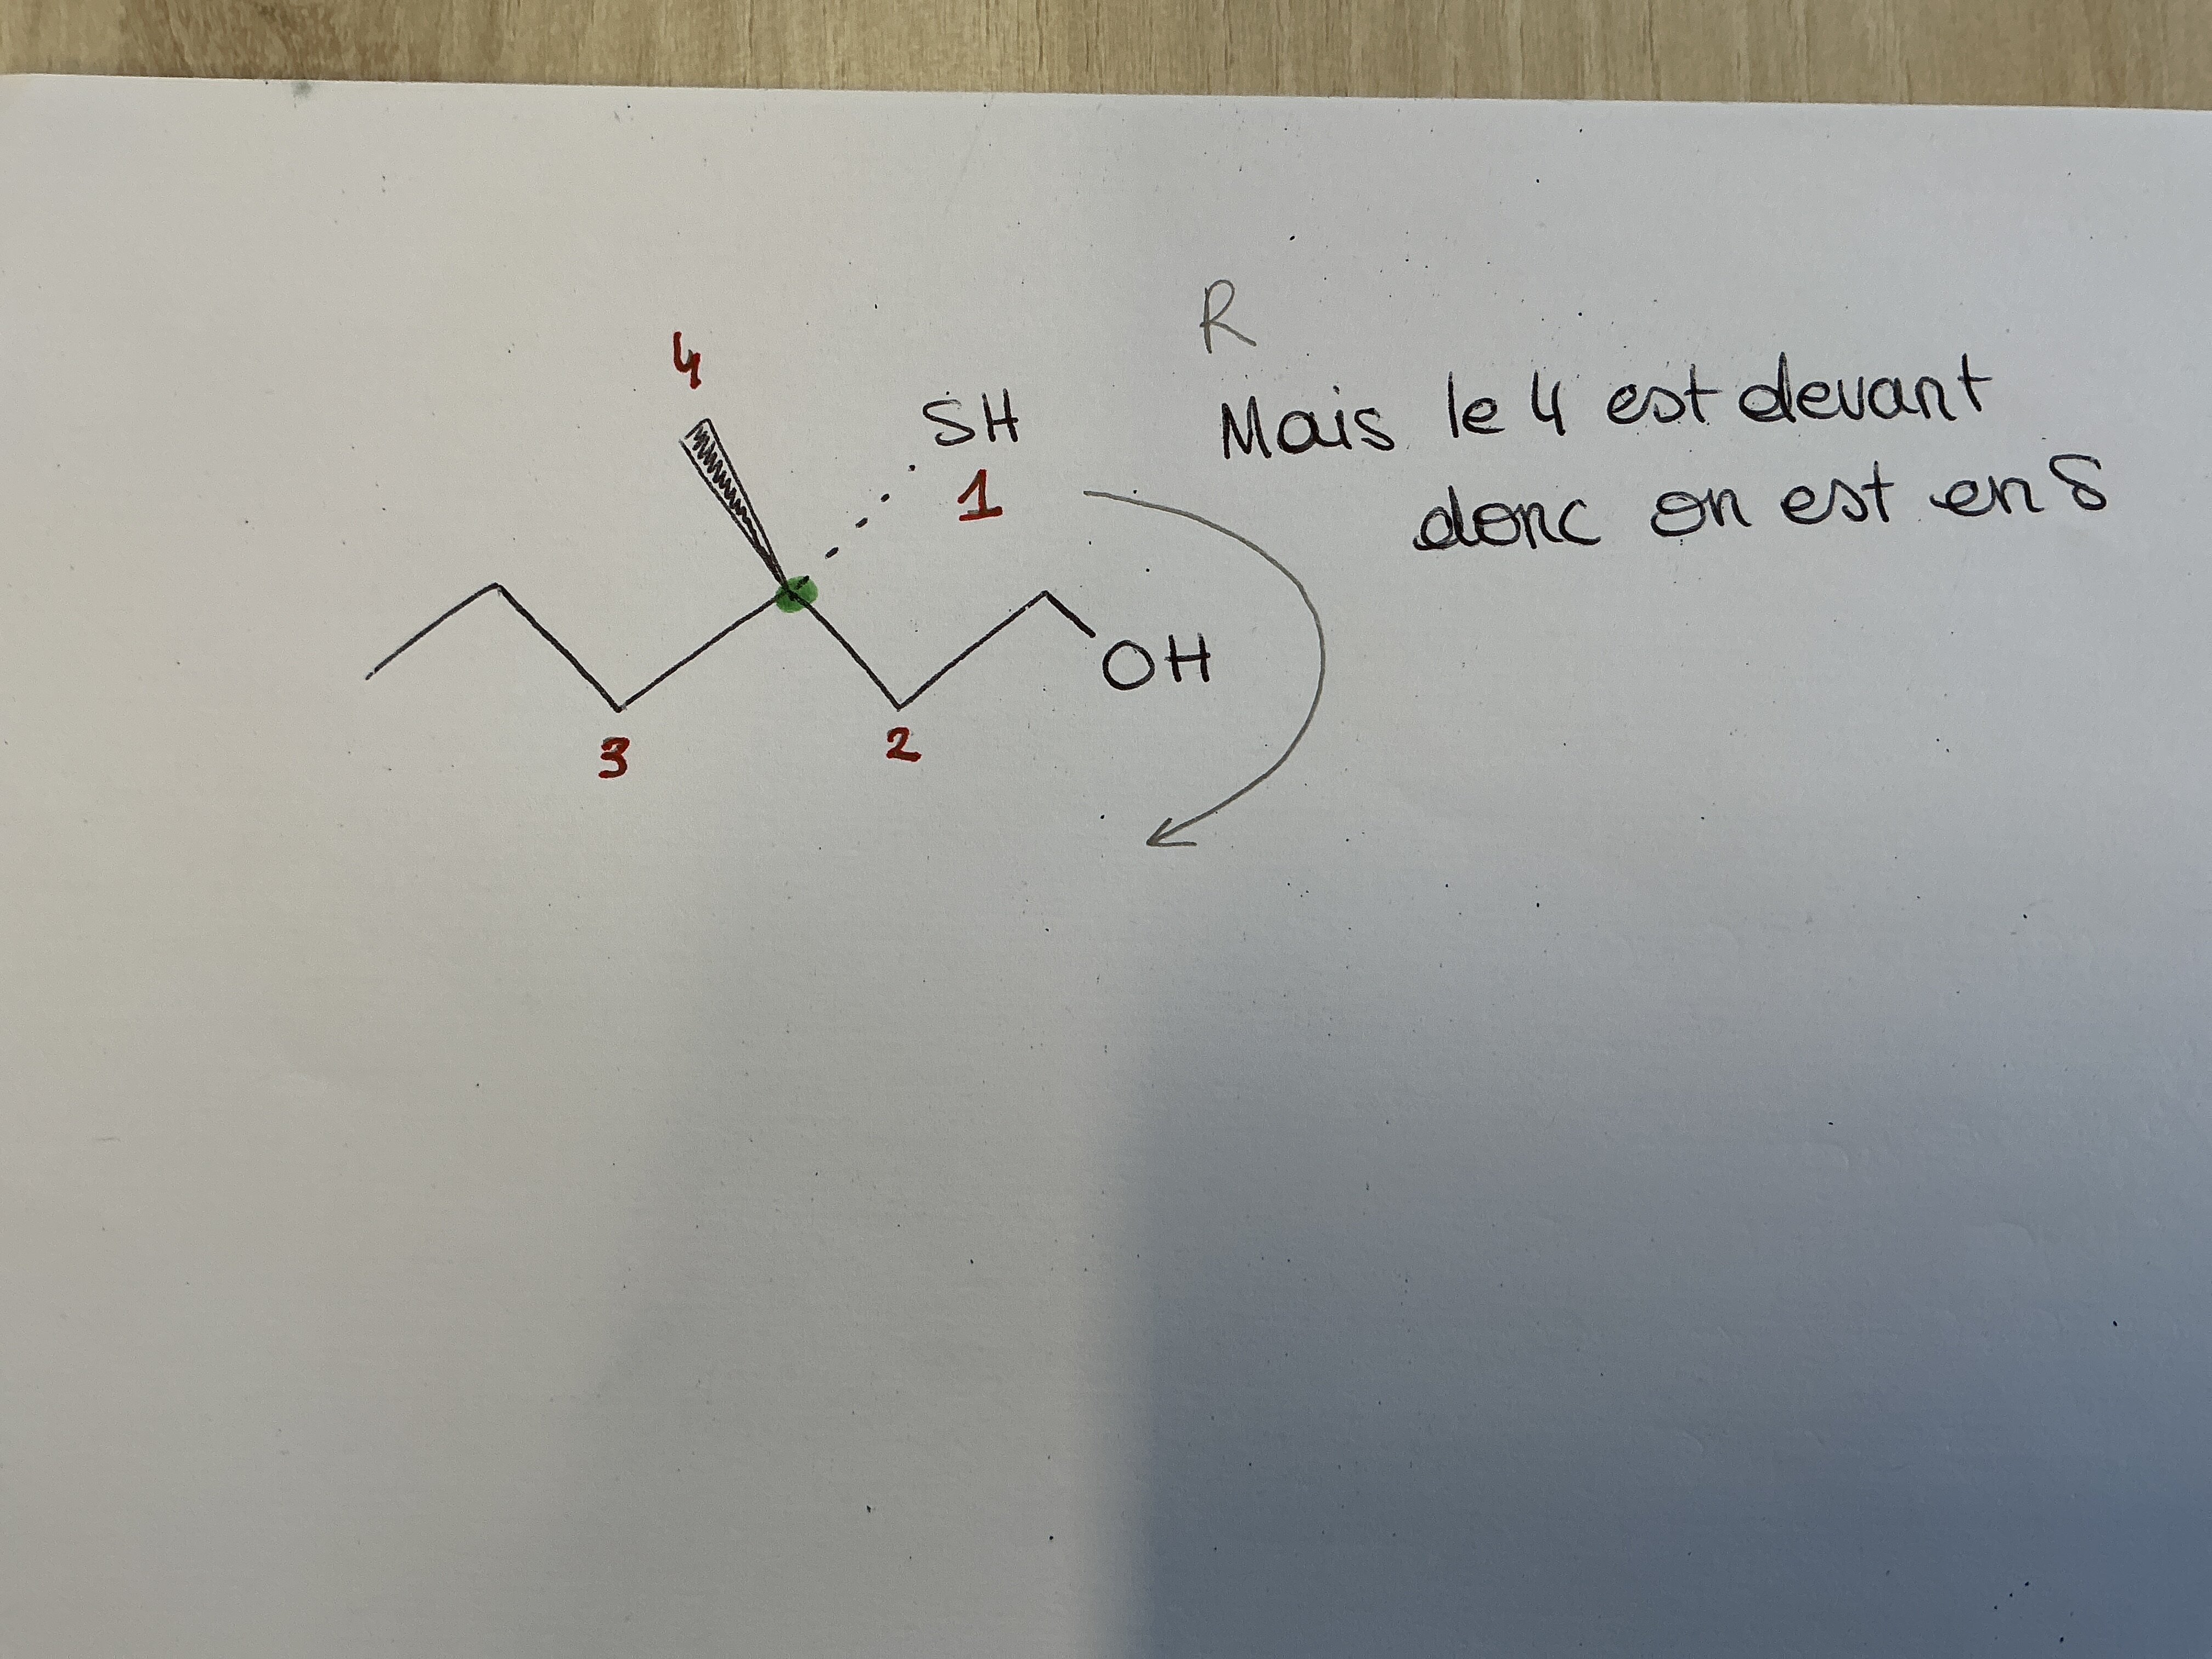 R
4
SH
Mais le 4 est devant
1
donc on est en S
OH
3
2